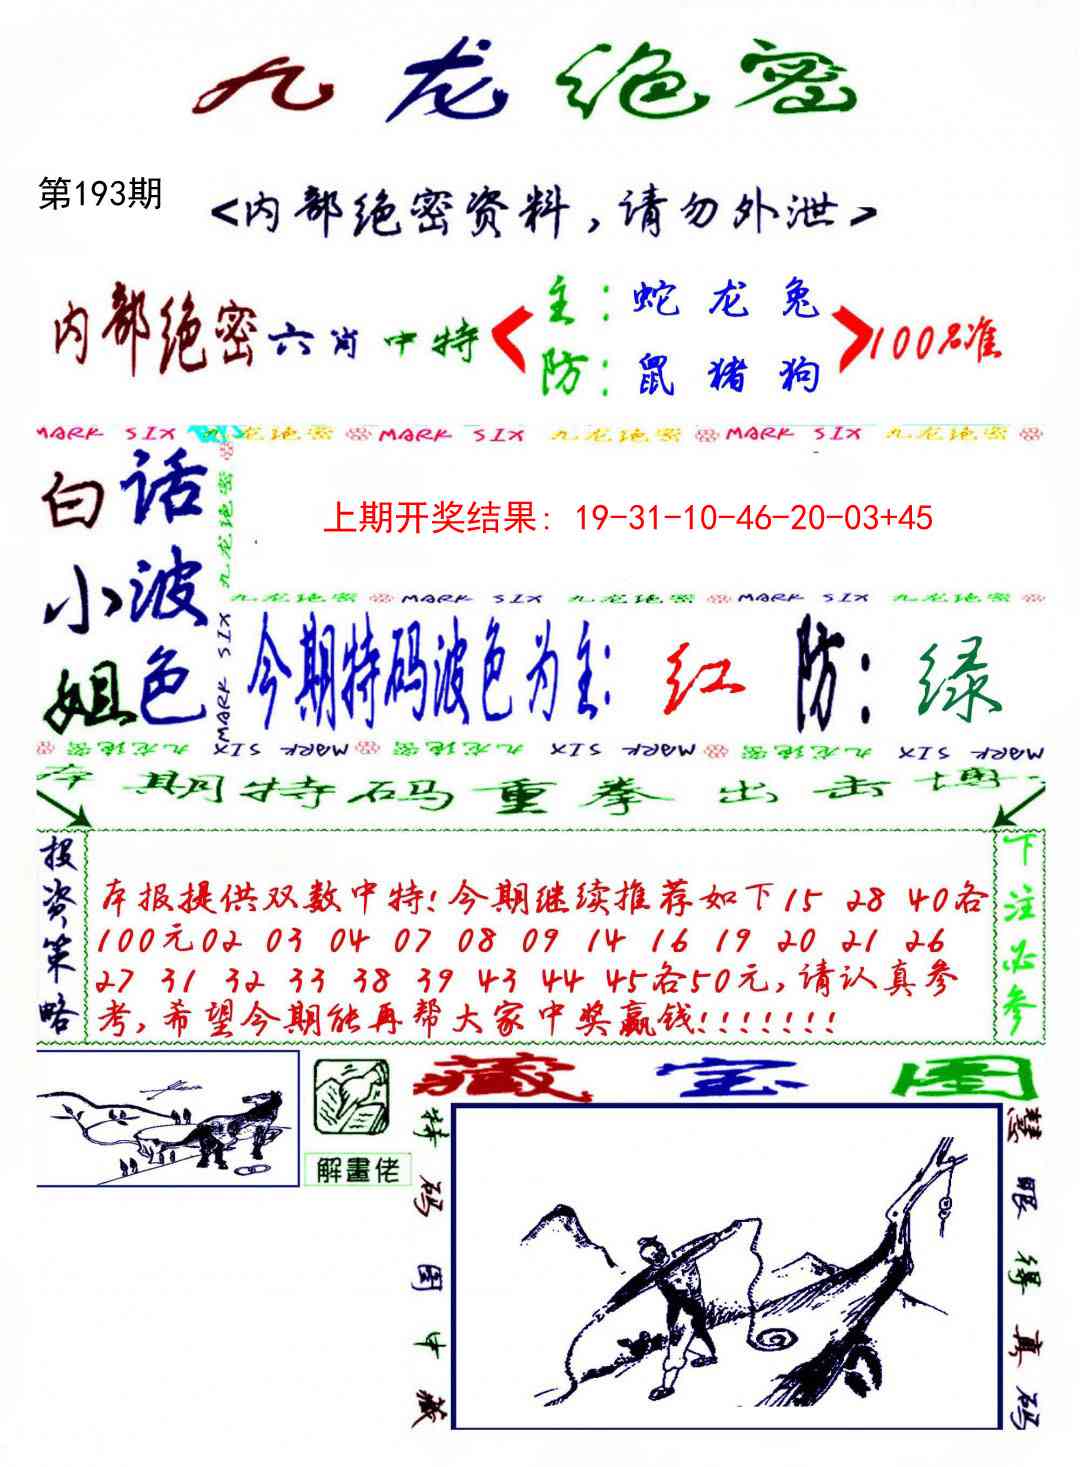 九龙绝密
第193期
<内部绝密资料,请勿外泄>
内部绝密六肖中特
主:蛇龙兔
防:鼠猪狗
100%准
MARK SIX 九龙绝密 MARK SIX 九龙绝密 MARK SIX 九龙绝密
白话
小波
姐色
九龙绝密
MARK SIX
上期开奖结果: 19-31-10-46-20-03+45
九龙绝密 MARK SIX 九龙绝密 MARK SIX 九龙绝密
今期特码波色为主: 红 防: 绿
九龙绝密 MARK SIX 九龙绝密 MARK SIX 九龙绝密 MARK SIX
本期特码重拳出击博
投资策略
本报提供双数中特!今期继续推荐如下15 28 40各
100元02 03 04 07 08 09 14 16 19 20 21 26
27 31 32 33 38 39 43 44 45各50元,请认真参
考,希望今期能再帮大家中奖赢钱!!!!!!!
下注必参
解畫佬
藏宝图
特码图中藏
慧眼得真码